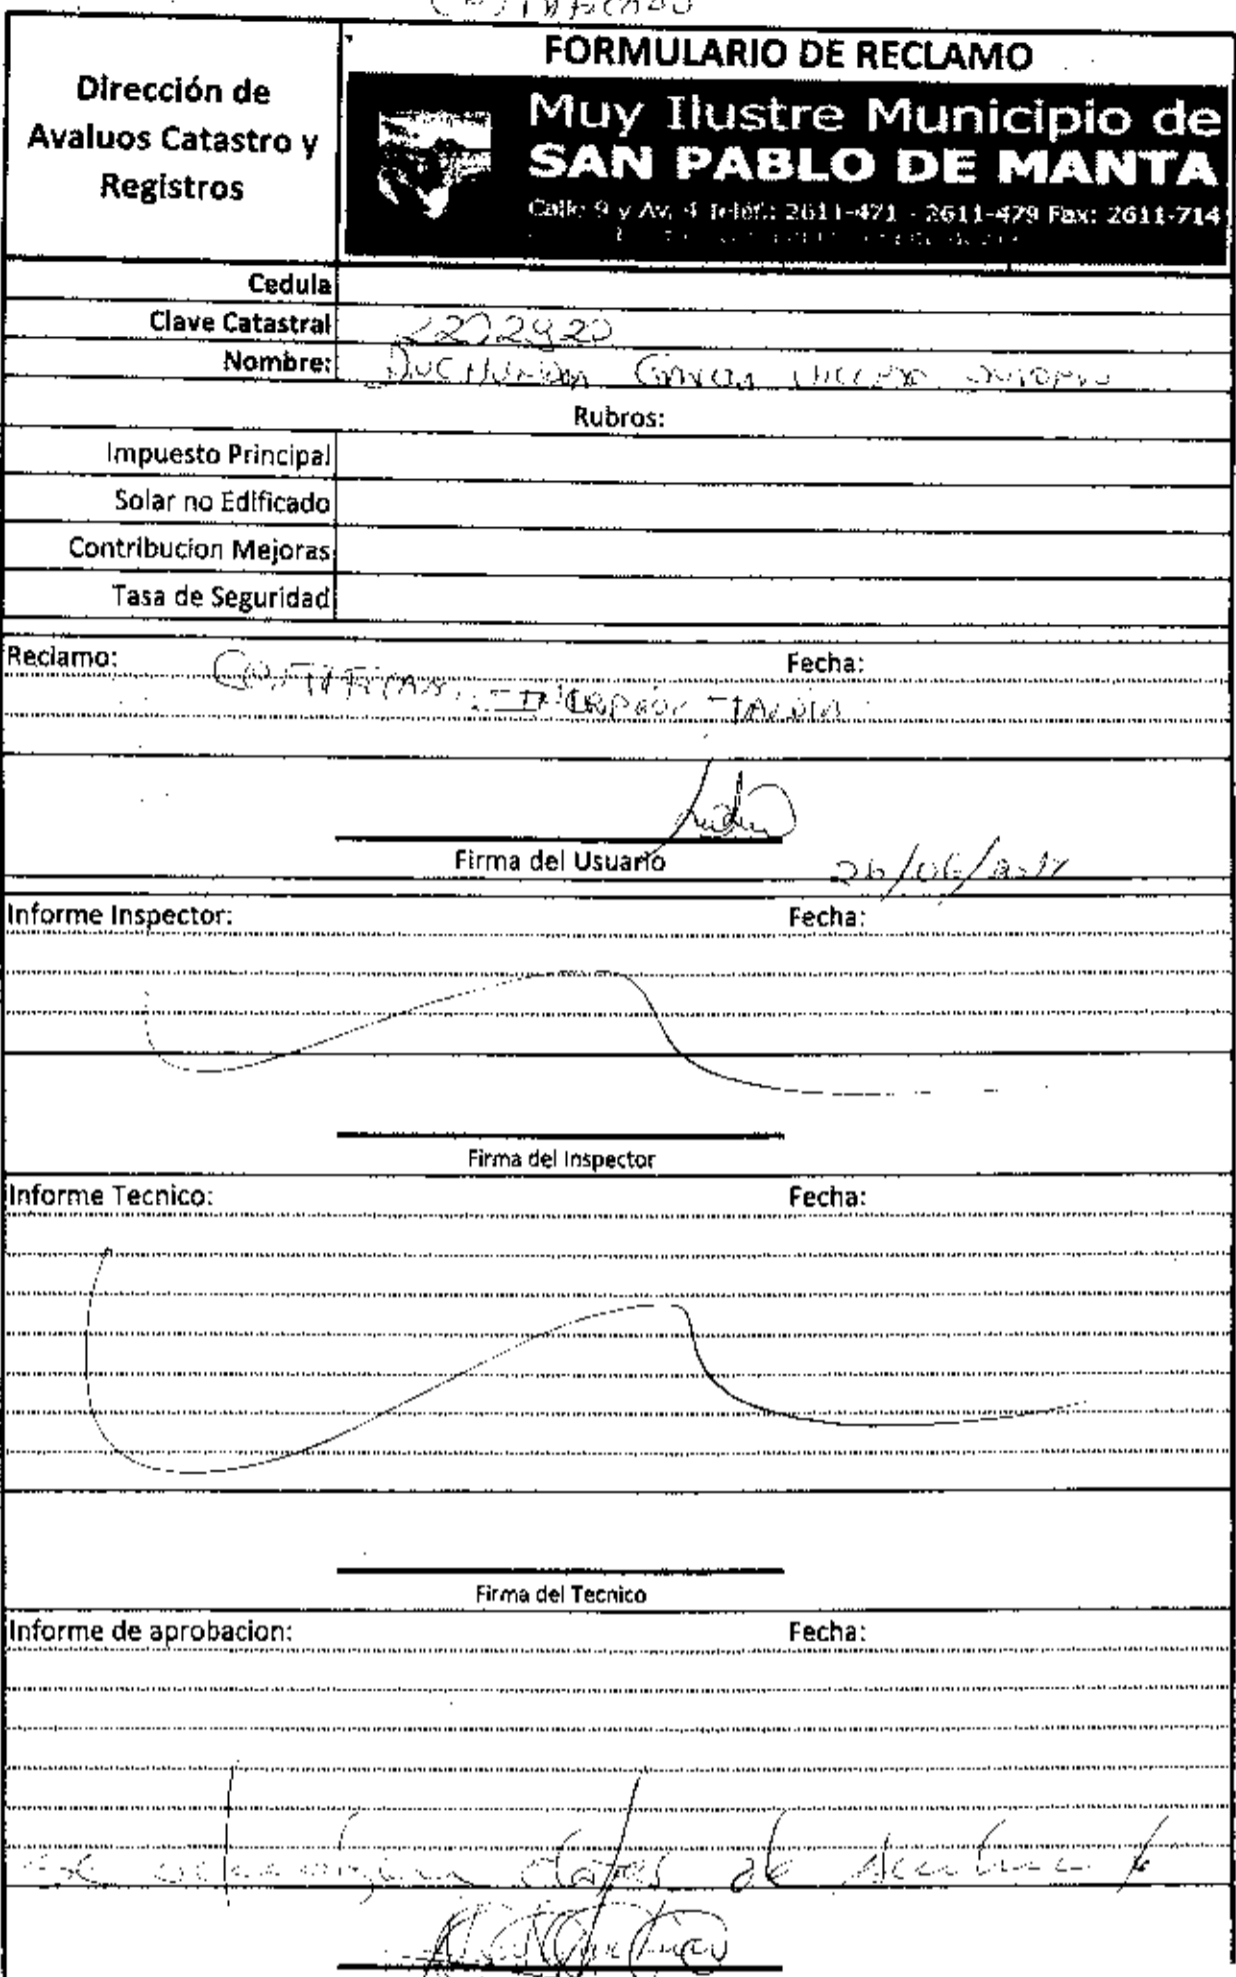 FORMULARIO DE RECLAMO
Dirección de
Avaluos Catastro y
Registros
Muy Ilustre Municipio de
SAN PABLO DE MANTA
Calle 9 y Av. 4 Teléf.: 2611-471 - 2611-479 Fax: 2611-714
Cedula
Clave Catastral 2202920
Nombre:
Rubros:
Impuesto Principal
Solar no Edificado
Contribucion Mejoras
Tasa de Seguridad
Reclamo: Fecha:
Firma del Usuario
Informe Inspector: Fecha:
Firma del Inspector
Informe Tecnico: Fecha:
Firma del Tecnico
Informe de aprobacion: Fecha:
datos de